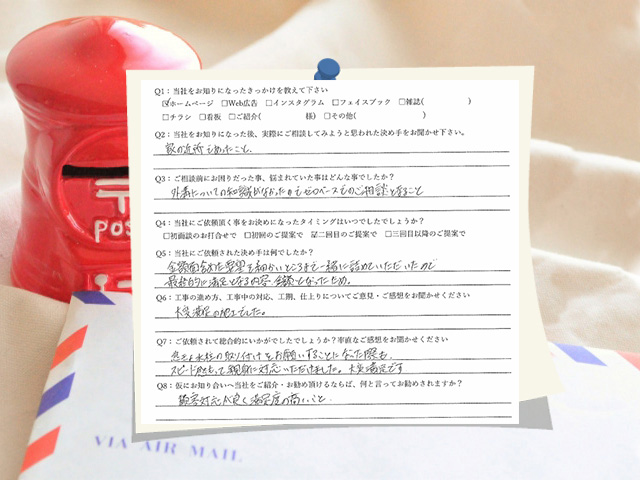 Q1：当社をお知りになったきっかけを教えて下さい
☑ホームページ □Web広告 □インスタグラム □フェイスブック □雑誌( )
□チラシ □看板 □ご紹介( 様) □その他( )
Q2：当社をお知りになった後、実際にご相談してみようと思われた決め手をお聞かせ下さい。
家の近所であったこと。
Q3：ご相談前にお困りだった事、悩まれていた事はどんな事でしたか？
外構についての知識がなかったのでゼロベースでのご相談となること
Q4：当社にご依頼頂く事をお決めになったタイミングはいつでしたでしょうか？
□初面談のお打合せで □初回のご提案で ☑二回目のご提案で □三回目以降のご提案で
Q5：当社にご依頼された決め手は何でしたか？
金額面含めた要望を細かいところまで一緒に詰めていただいたので
最終的に満足となる内容、金額となったため。
Q6：工事の進め方、工事中の対応、工期、仕上りについてご意見・ご感想をお聞かせください
大変満足の施工でした。
Q7：ご依頼されて総合的にいかがでしたでしょうか？率直なご感想をお聞かせください
急きょ水栓の取り付けをお願いすることになった際も、
スピード感もって親身に対応いただけました。大変満足です
Q8：仮にお知り合いへ当社をご紹介・お勧め頂けるならば、何と言ってお勧めされますか？
顧客対応が良く満足度の高いこと。
POS
VIA AIR MAIL